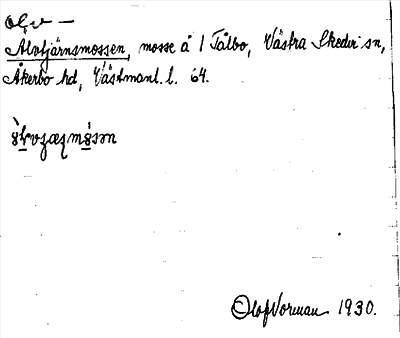 Alvtjärnsmossen, mosse å 1 Tålbo, Västra Skedvi sn,
Åkerbo hd, Västmanl. l. 64.
Olof Norman 1930.